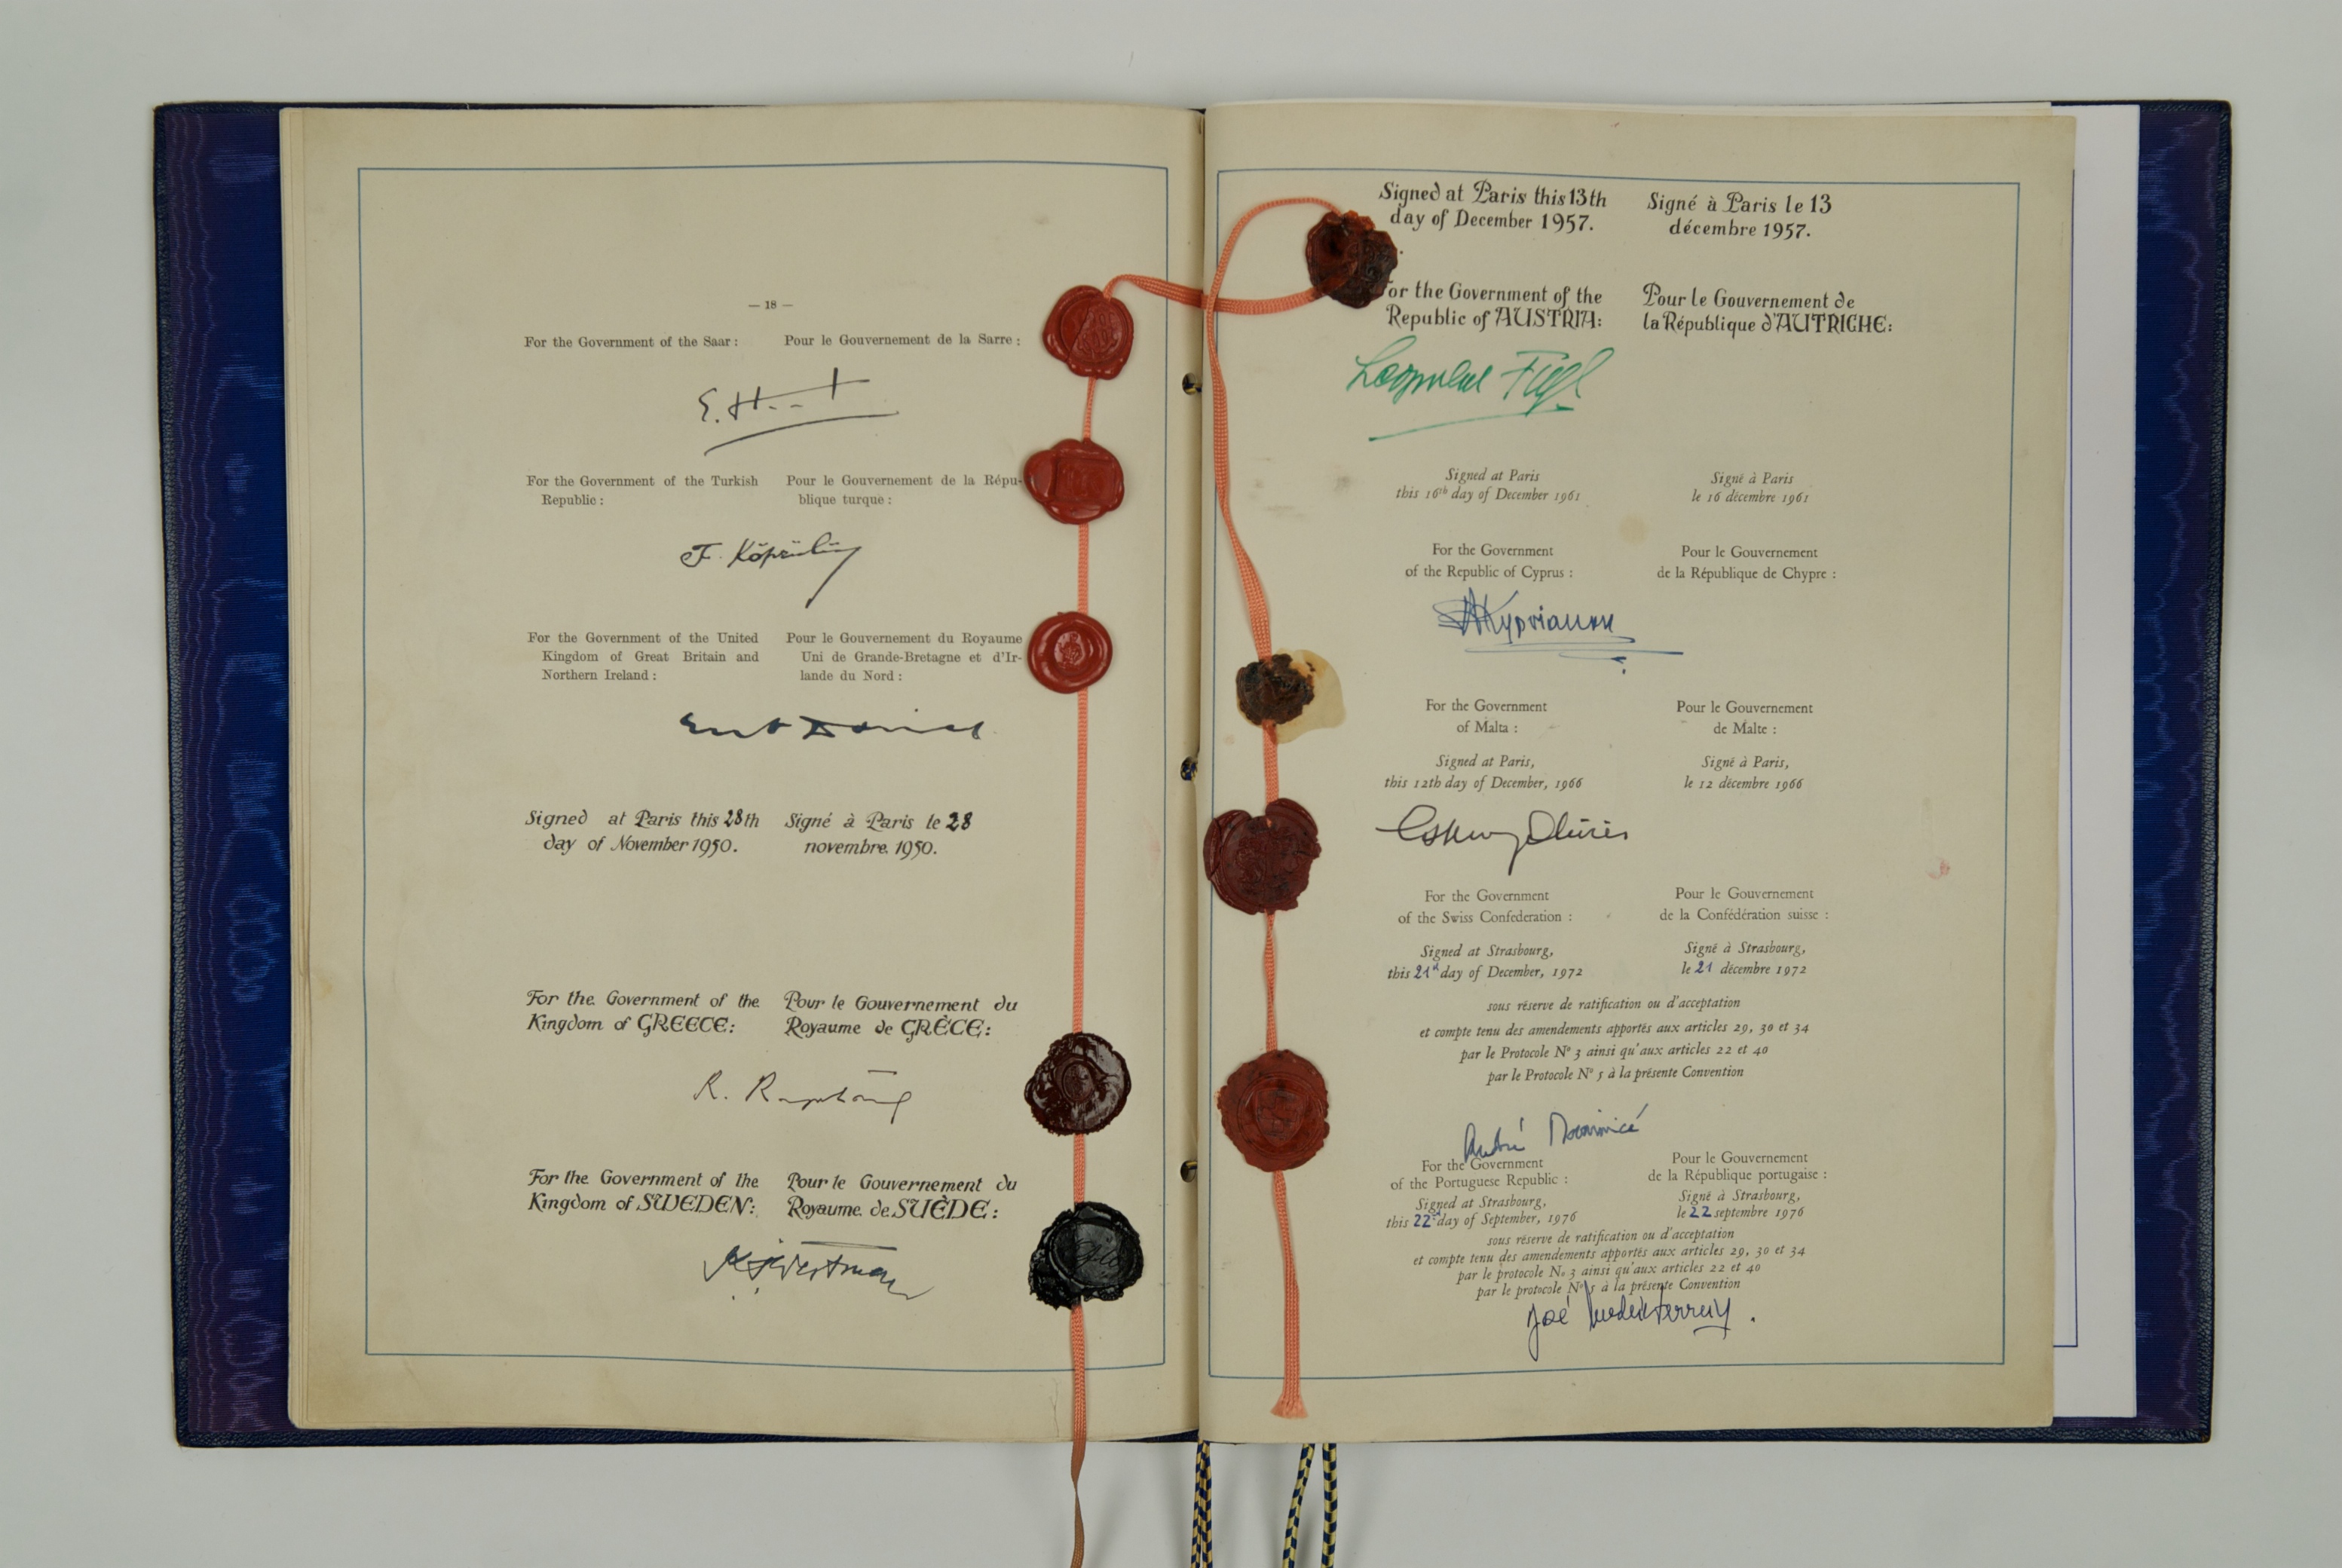 — 18 —
For the Government of the Saar :
Pour le Gouvernement de la Sarre :
E. H
For the Government of the Turkish
Republic :
Pour le Gouvernement de la Répu-
blique turque :
F. Köprülü
For the Government of the United
Kingdom of Great Britain and
Northern Ireland :
Pour le Gouvernement du Royaume
Uni de Grande-Bretagne et d'Ir-
lande du Nord :
Signed at Paris this 28th
day of November 1950.
Signé à Paris le 28
novembre 1950.
For the Government of the
Kingdom of GREECE:
Pour le Gouvernement du
Royaume de GRÈCE:
R.
For the Government of the
Kingdom of SWEDEN:
Pour le Gouvernement du
Royaume de SUÈDE:
Signed at Paris this 13th
day of December 1957.
Signé à Paris le 13
décembre 1957.
For the Government of the
Republic of AUSTRIA:
Pour le Gouvernement de
la République d'AUTRICHE:
Leopold Figl
Signed at Paris
this 16th day of December 1961
Signé à Paris
le 16 décembre 1961
For the Government
of the Republic of Cyprus :
Pour le Gouvernement
de la République de Chypre :
Kyprianou
For the Government
of Malta :
Pour le Gouvernement
de Malte :
Signed at Paris,
this 12th day of December, 1966
Signé à Paris,
le 12 décembre 1966
For the Government
of the Swiss Confederation :
Pour le Gouvernement
de la Confédération suisse :
Signed at Strasbourg,
this 21st day of December, 1972
Signé à Strasbourg,
le 21 décembre 1972
sous réserve de ratification ou d'acceptation
et compte tenu des amendements apportés aux articles 29, 30 et 34
par le Protocole N° 3 ainsi qu'aux articles 22 et 40
par le Protocole N° 5 à la présente Convention
André
For the Government
of the Portuguese Republic :
Pour le Gouvernement
de la République portugaise :
Signed at Strasbourg,
this 22nd day of September, 1976
Signé à Strasbourg,
le 22 septembre 1976
sous réserve de ratification ou d'acceptation
et compte tenu des amendements apportés aux articles 29, 30 et 34
par le protocole No 3 ainsi qu'aux articles 22 et 40
par le protocole N° 5 à la présente Convention
José